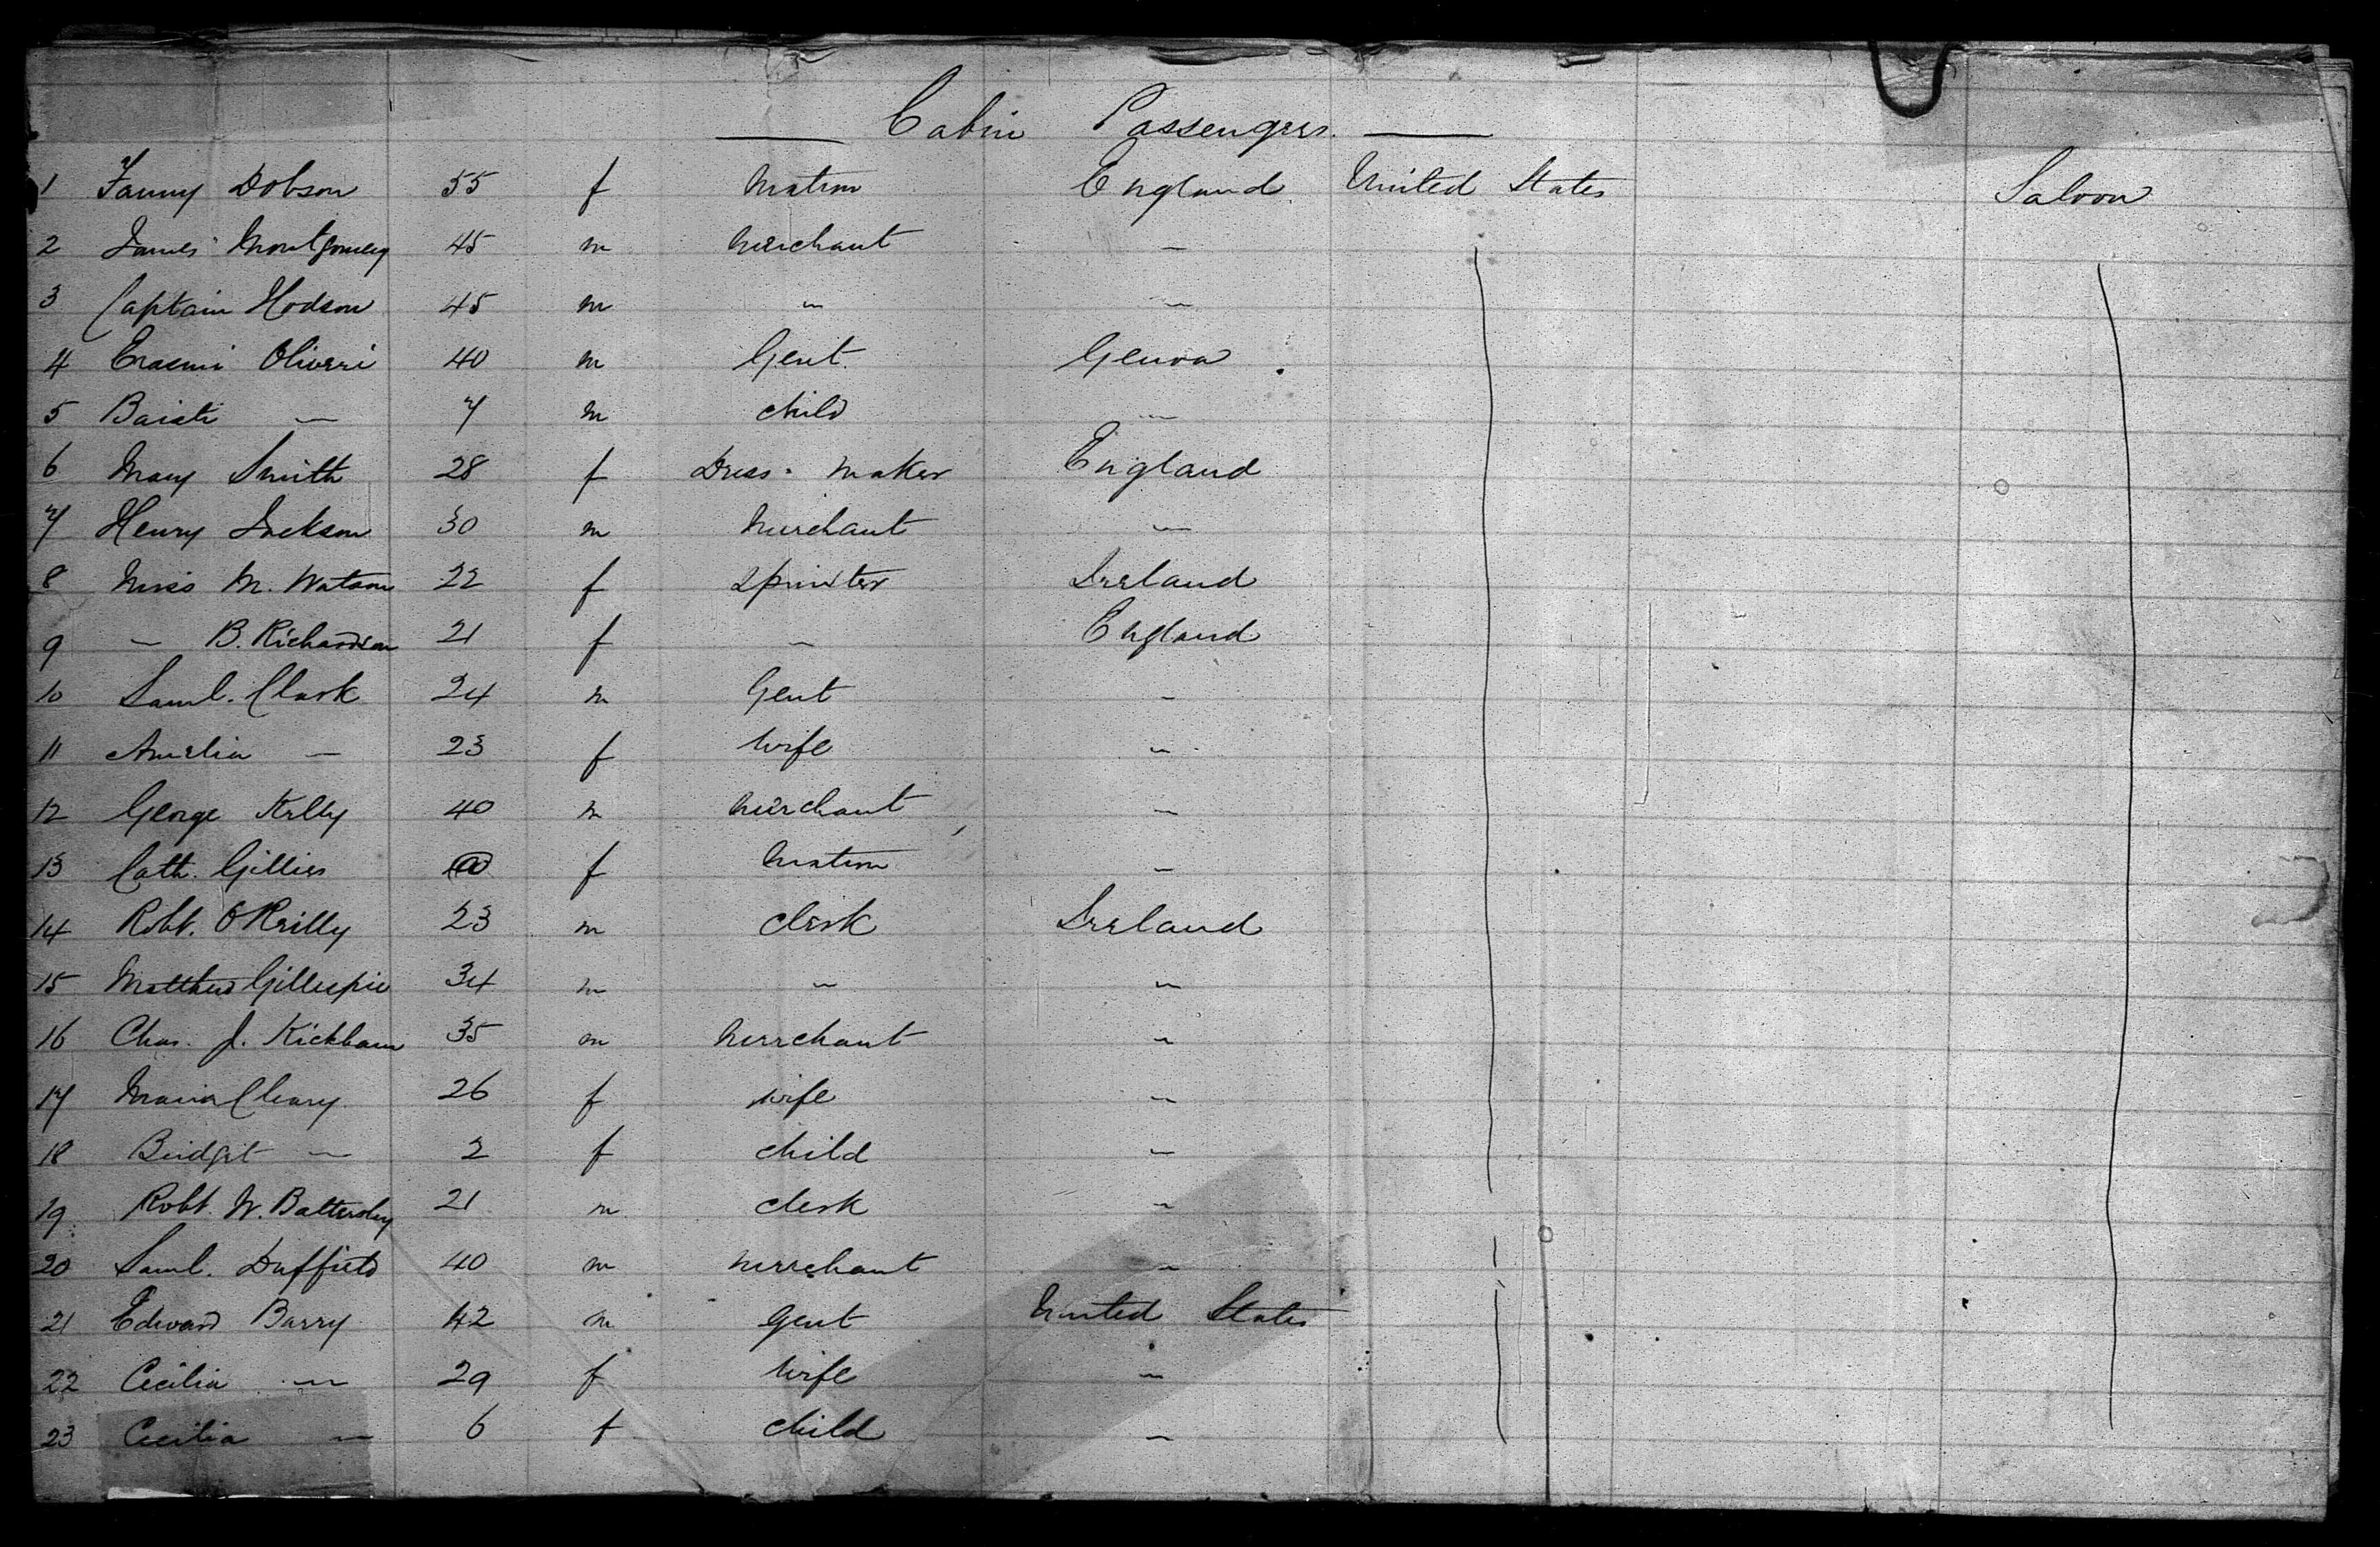 — Cabin Passengers. —
1 Fanny Dobson 55 f Matron England United States Saloon
2 James Montgomery 45 m Merchant —
3 Captain Hodson 45 m — —
4 Erasmi Oliveri 40 m Gent. Genoa
5 — 7 m child —
6 Mary Smith 28 f Dress-Maker England
7 Henry Jackson 30 m Merchant —
8 Miss M. Watson 22 f Spinster Ireland
9 — B. Richardson 21 f — England
10 Saml. Clark 24 m Gent —
11 Amelia — 23 f Wife —
12 George Kelly 40 m Merchant —
13 Cath. Gillies f Matron —
14 Robt. O'Reilly 23 m Clerk Ireland
15 Matthew Gillespie 34 m — —
16 Chas. J. Kickham 35 m Merchant —
17 Maria Cleary 26 f wife —
18 Bridget — 2 f child —
19 Robt. W. Battersby 21 m clerk —
20 Saml. Duffield 40 m merchant —
21 Edward Barry 42 m Gent United States
22 Cecilia — 29 f Wife —
23 Cecilia — 6 f child —